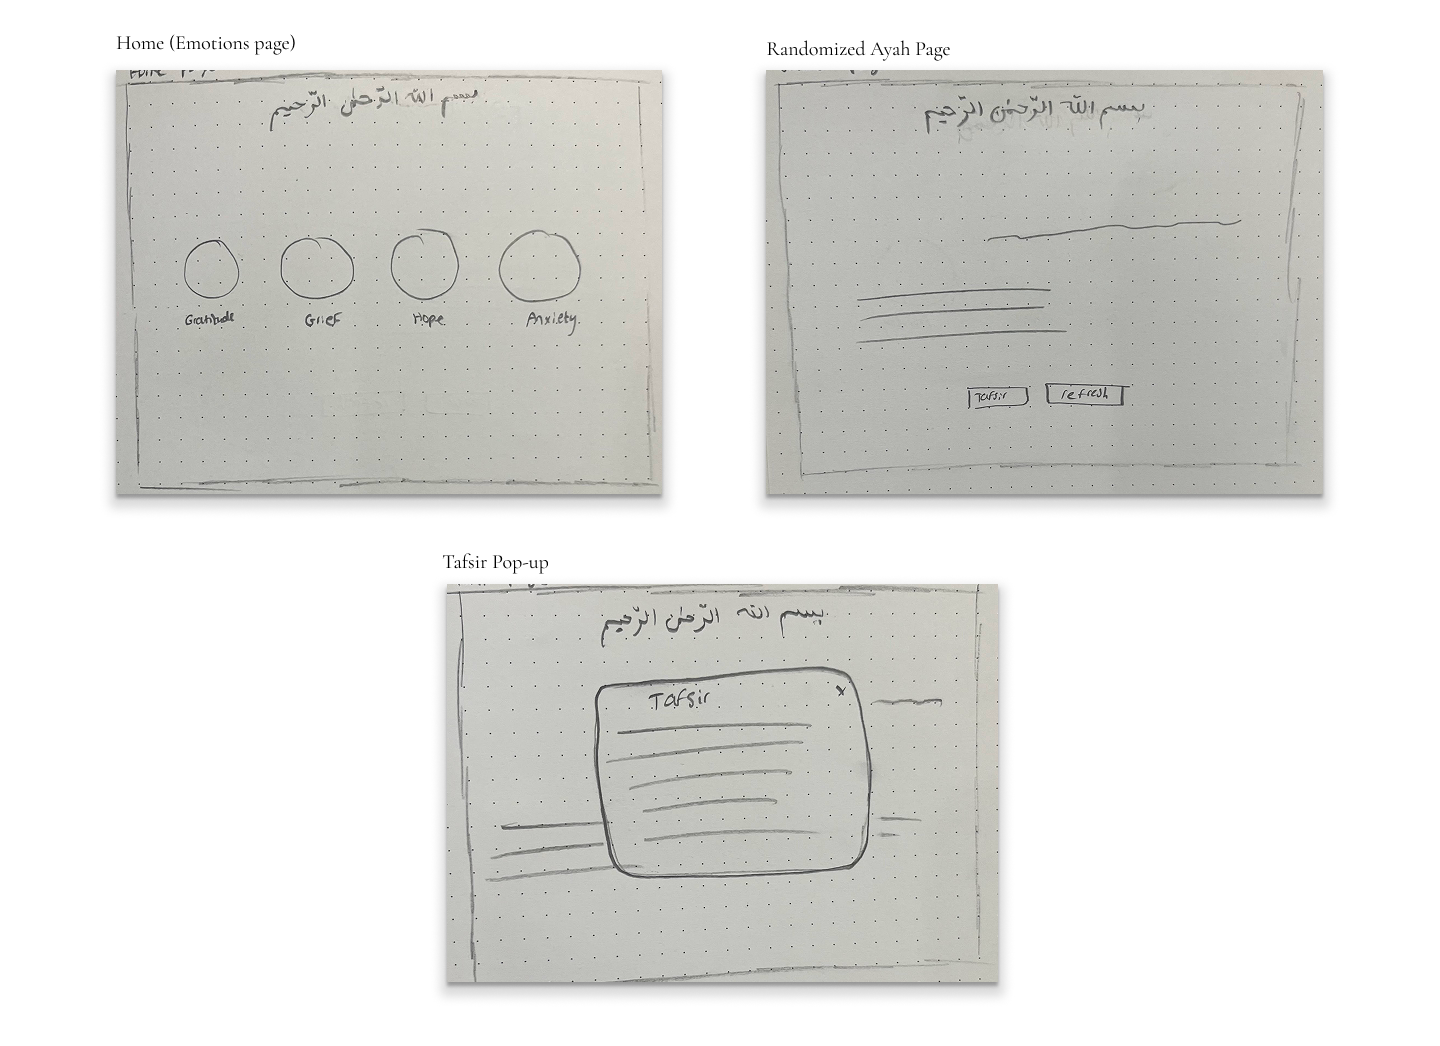 Home (Emotions page)
بسم الله الرّحمٰن الرّحيم
Gratitude
Grief
Hope
Anxiety
Randomized Ayah Page
بسم الله الرّحمٰن الرّحيم
Tafsir
refresh
Tafsir Pop-up
بسم الله الرّحمٰن الرّحيم
Tafsir
x